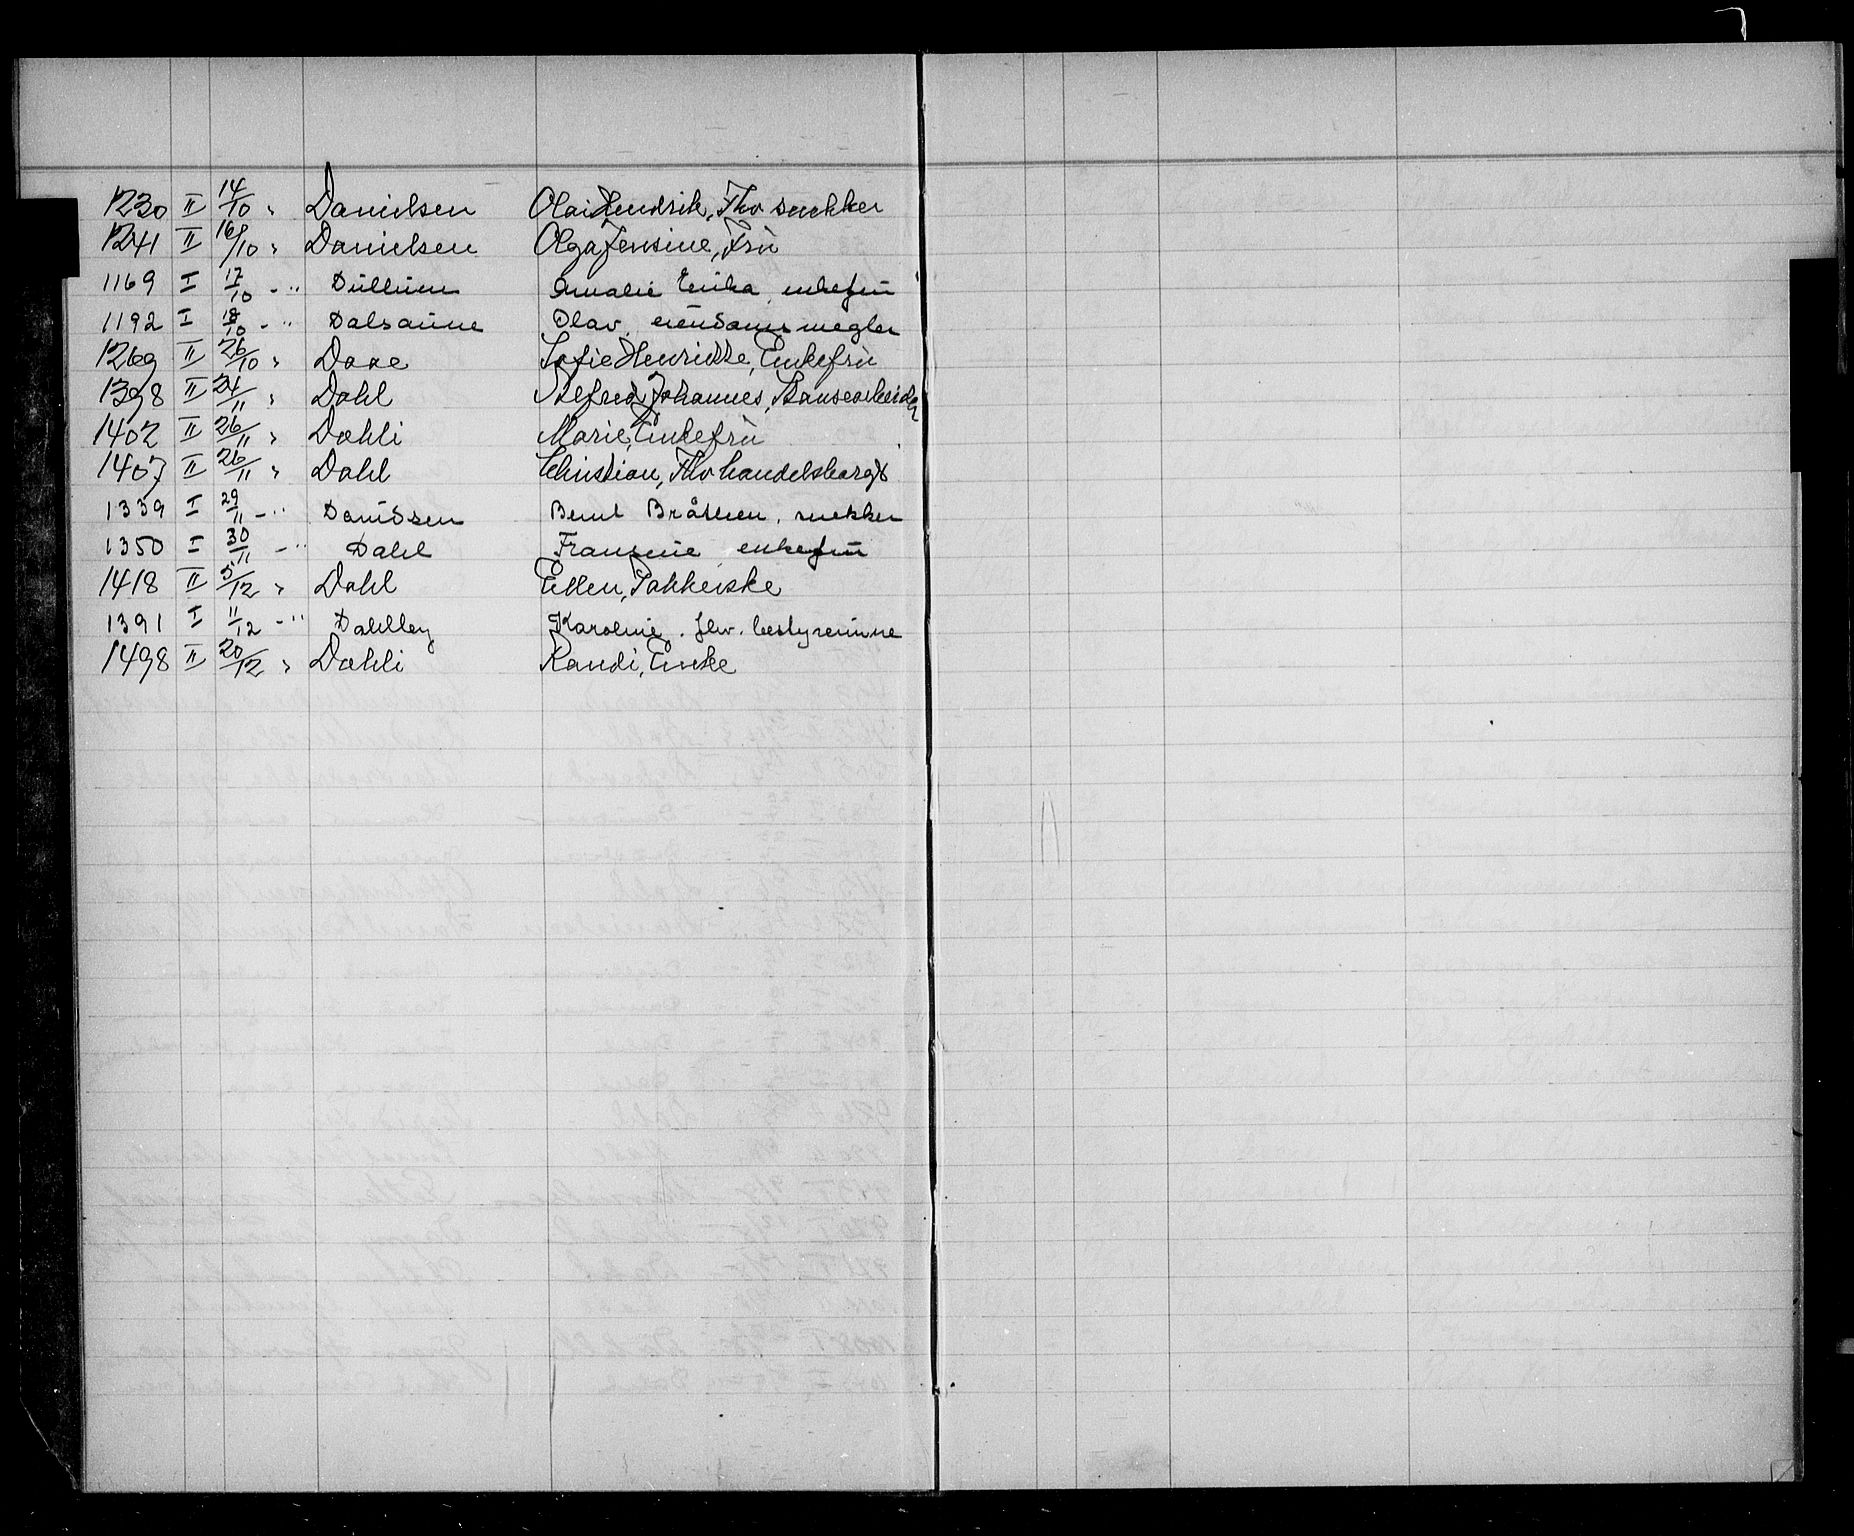 1230 II 14/10 " Danielsen Olai Hendrik, Fhv snekker
1241 II 16/10 " Danielsen Olga Jensine, Frü
1169 I 17/10 - " Amalie Erika, enkefrü
1192 I 18/10 - " Dalsaüne Olav, eiendoms megler
1269 II 26/10 " Daae Sofie Henrikke, Enkefrü
1398 II 24/11 " Dahl Alfred Johannes,
1402 II 26/11 " Dahli Marie, Enkefrü
1407 II 26/11 " Dahl Christian, Fhv handelsborg
1339 I 29/11 - " Davidsen Bernt Bråthen, snekker
1350 I 30/11 - " Dahl Fransine enkefrü
1418 II 5/12 " Dahl Ellen, Pakkerske
1391 I 11/12 - " Dahlley Karoline, fhv. bestyrerinne
1498 II 20/12 " Dahli Randi, Enke